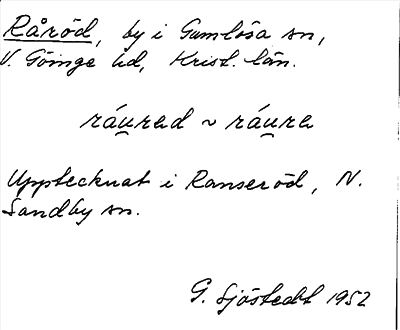 Råröd, by i Gumlösa sn,
V. Göinge hd, Krist. län.
ráu̯rad ~ ráu̯ra
Upptecknat i Ranseröd, N.
Sandby sn.
G. Sjöstedt 1952